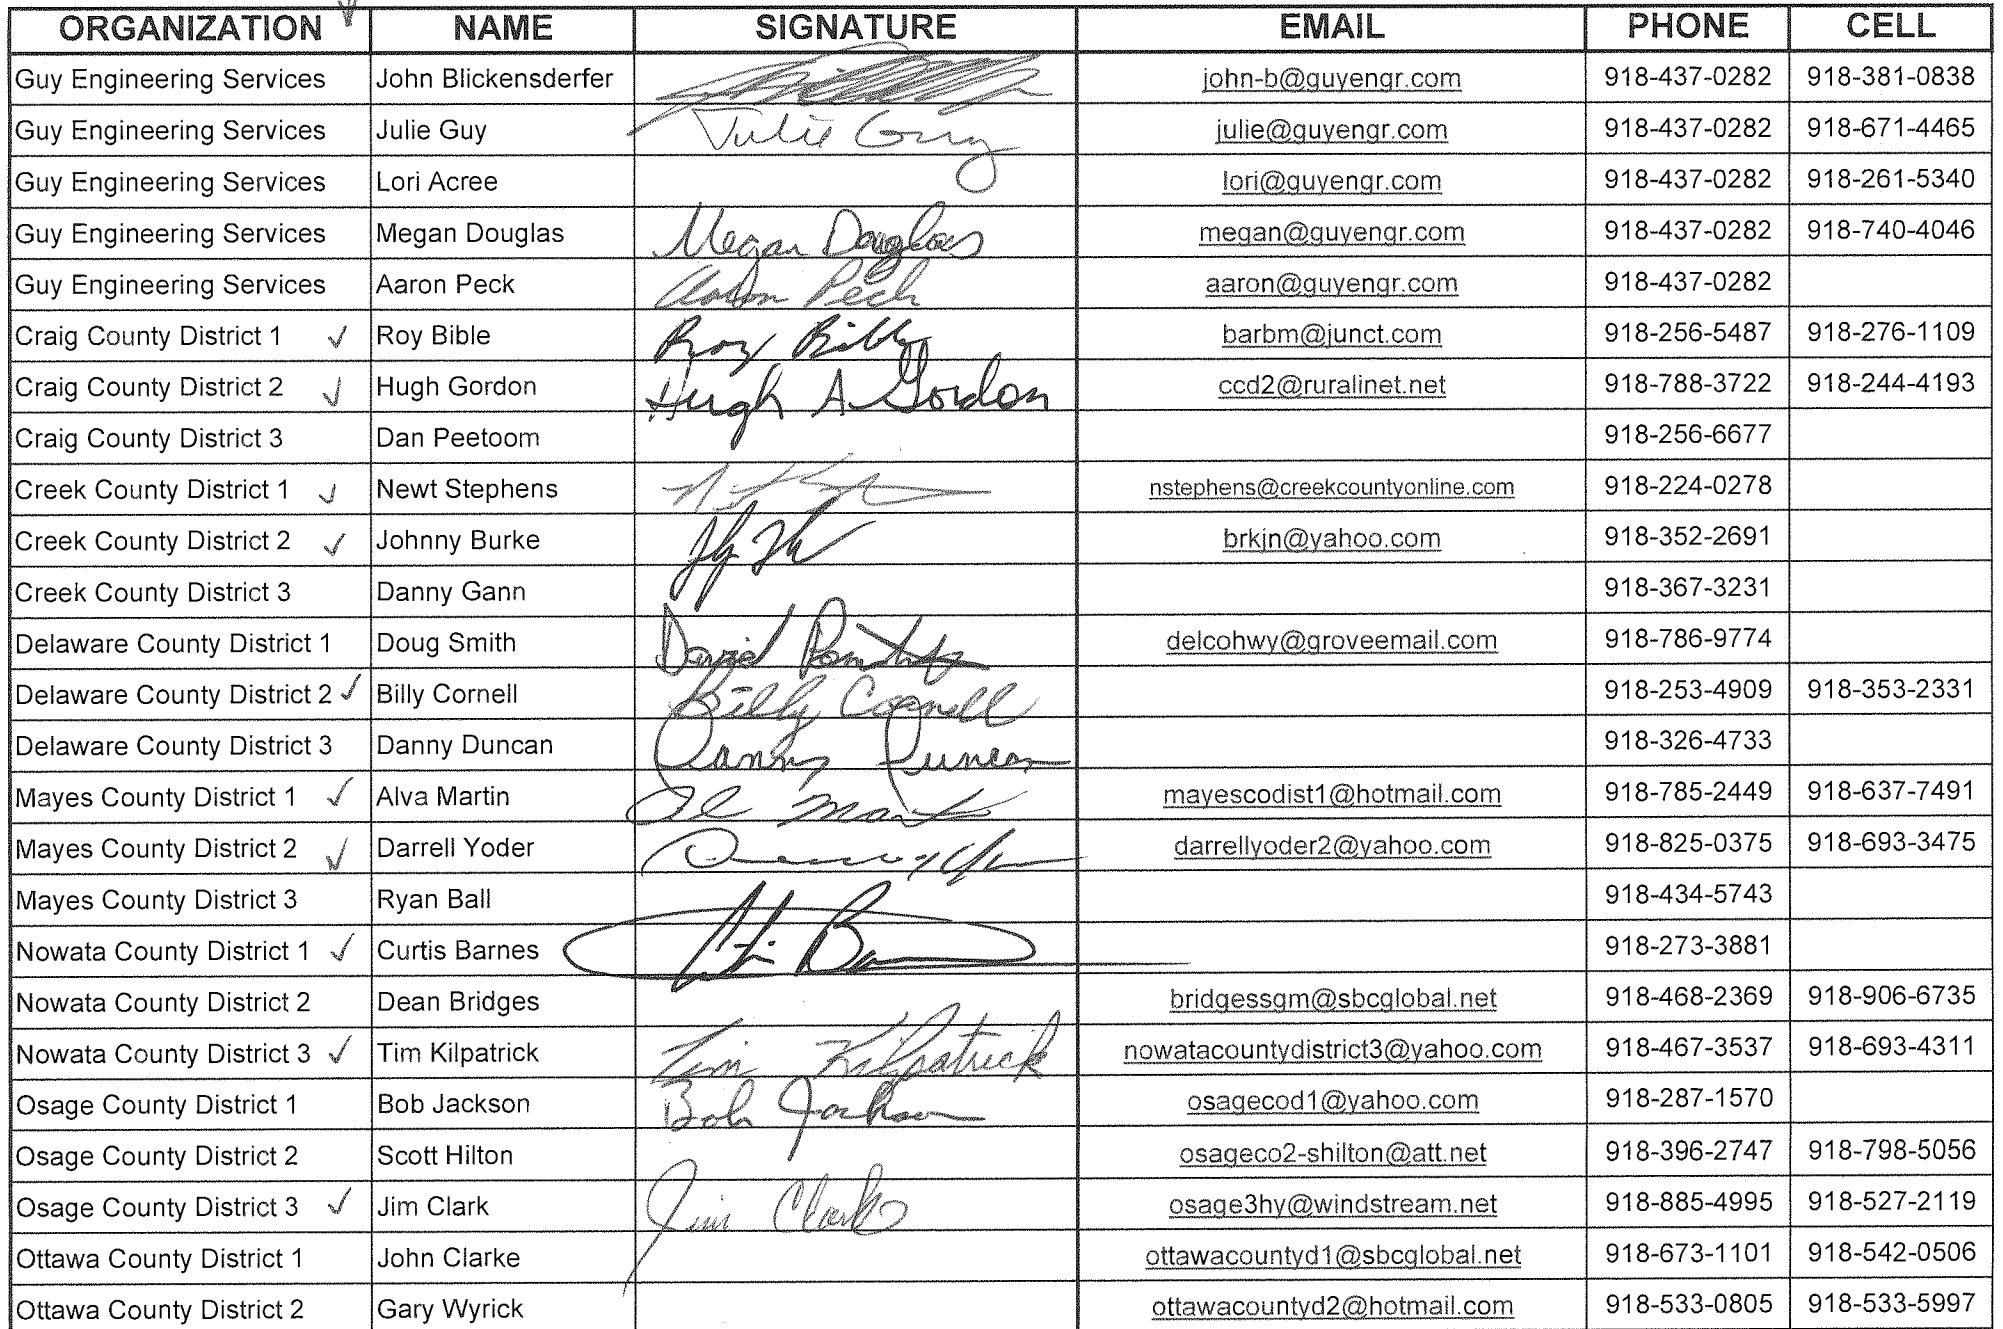 ORGANIZATION NAME SIGNATURE EMAIL PHONE CELL
Guy Engineering Services John Blickensderfer john-b@guyengr.com 918-437-0282 918-381-0838
Guy Engineering Services Julie Guy Julie Guy julie@guyengr.com 918-437-0282 918-671-4465
Guy Engineering Services Lori Acree lori@guyengr.com 918-437-0282 918-261-5340
Guy Engineering Services Megan Douglas Megan Douglas megan@guyengr.com 918-437-0282 918-740-4046
Guy Engineering Services Aaron Peck Aaron Peck aaron@guyengr.com 918-437-0282
Craig County District 1 ✓ Roy Bible Roy Bible barbm@junct.com 918-256-5487 918-276-1109
Craig County District 2 ✓ Hugh Gordon Hugh A Gordon ccd2@ruralinet.net 918-788-3722 918-244-4193
Craig County District 3 Dan Peetoom 918-256-6677
Creek County District 1 ✓ Newt Stephens nstephens@creekcountyonline.com 918-224-0278
Creek County District 2 ✓ Johnny Burke brkjn@yahoo.com 918-352-2691
Creek County District 3 Danny Gann 918-367-3231
Delaware County District 1 Doug Smith David delcohwy@groveemail.com 918-786-9774
Delaware County District 2 ✓ Billy Cornell Billy Cornell 918-253-4909 918-353-2331
Delaware County District 3 Danny Duncan Danny Duncan 918-326-4733
Mayes County District 1 ✓ Alva Martin Al Martin mayescodist1@hotmail.com 918-785-2449 918-637-7491
Mayes County District 2 ✓ Darrell Yoder darrellyoder2@yahoo.com 918-825-0375 918-693-3475
Mayes County District 3 Ryan Ball 918-434-5743
Nowata County District 1 ✓ Curtis Barnes 918-273-3881
Nowata County District 2 Dean Bridges bridgessgm@sbcglobal.net 918-468-2369 918-906-6735
Nowata County District 3 ✓ Tim Kilpatrick Tim Kilpatrick nowatacountydistrict3@yahoo.com 918-467-3537 918-693-4311
Osage County District 1 Bob Jackson Bob Jackson osagecod1@yahoo.com 918-287-1570
Osage County District 2 Scott Hilton osageco2-shilton@att.net 918-396-2747 918-798-5056
Osage County District 3 ✓ Jim Clark Jim Clark osage3hy@windstream.net 918-885-4995 918-527-2119
Ottawa County District 1 John Clarke ottawacountyd1@sbcglobal.net 918-673-1101 918-542-0506
Ottawa County District 2 Gary Wyrick ottawacountyd2@hotmail.com 918-533-0805 918-533-5997